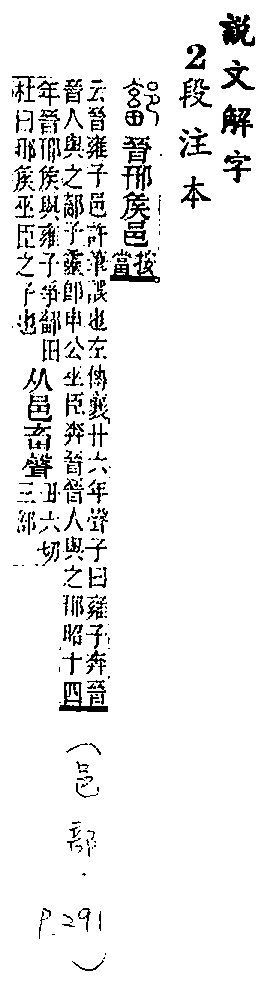 說文解字
2段注本
鄐 晉邢矦邑按當
云晉雍子邑許筆誤也左傳襄廿六年聲子曰雍子奔晉
晉人與之鄐子靈卽申公巫臣奔晉晉人與之邢昭十四
年晉邢矦與雍子爭鄐田
杜曰邢矦巫臣之子也
从邑畜聲
丑六切
三部
(邑部.P.291)